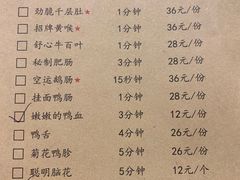 劲脆千层肚★ 1分钟 36元/份
招牌黄喉★ 1分钟 36元/份
舒心牛百叶 1分钟 28元/份
秘制肥肠 3分钟 28元/份
空运鹅肠★ 15秒钟 36元/份
挂面鸭肠 1分钟 28元/份
嫩嫩的鸭血 3分钟 12元/份
鸭舌 4分钟 26元/份
菊花鸭胗 5分钟 26元/份
聪明脑花 5分钟 12元/个